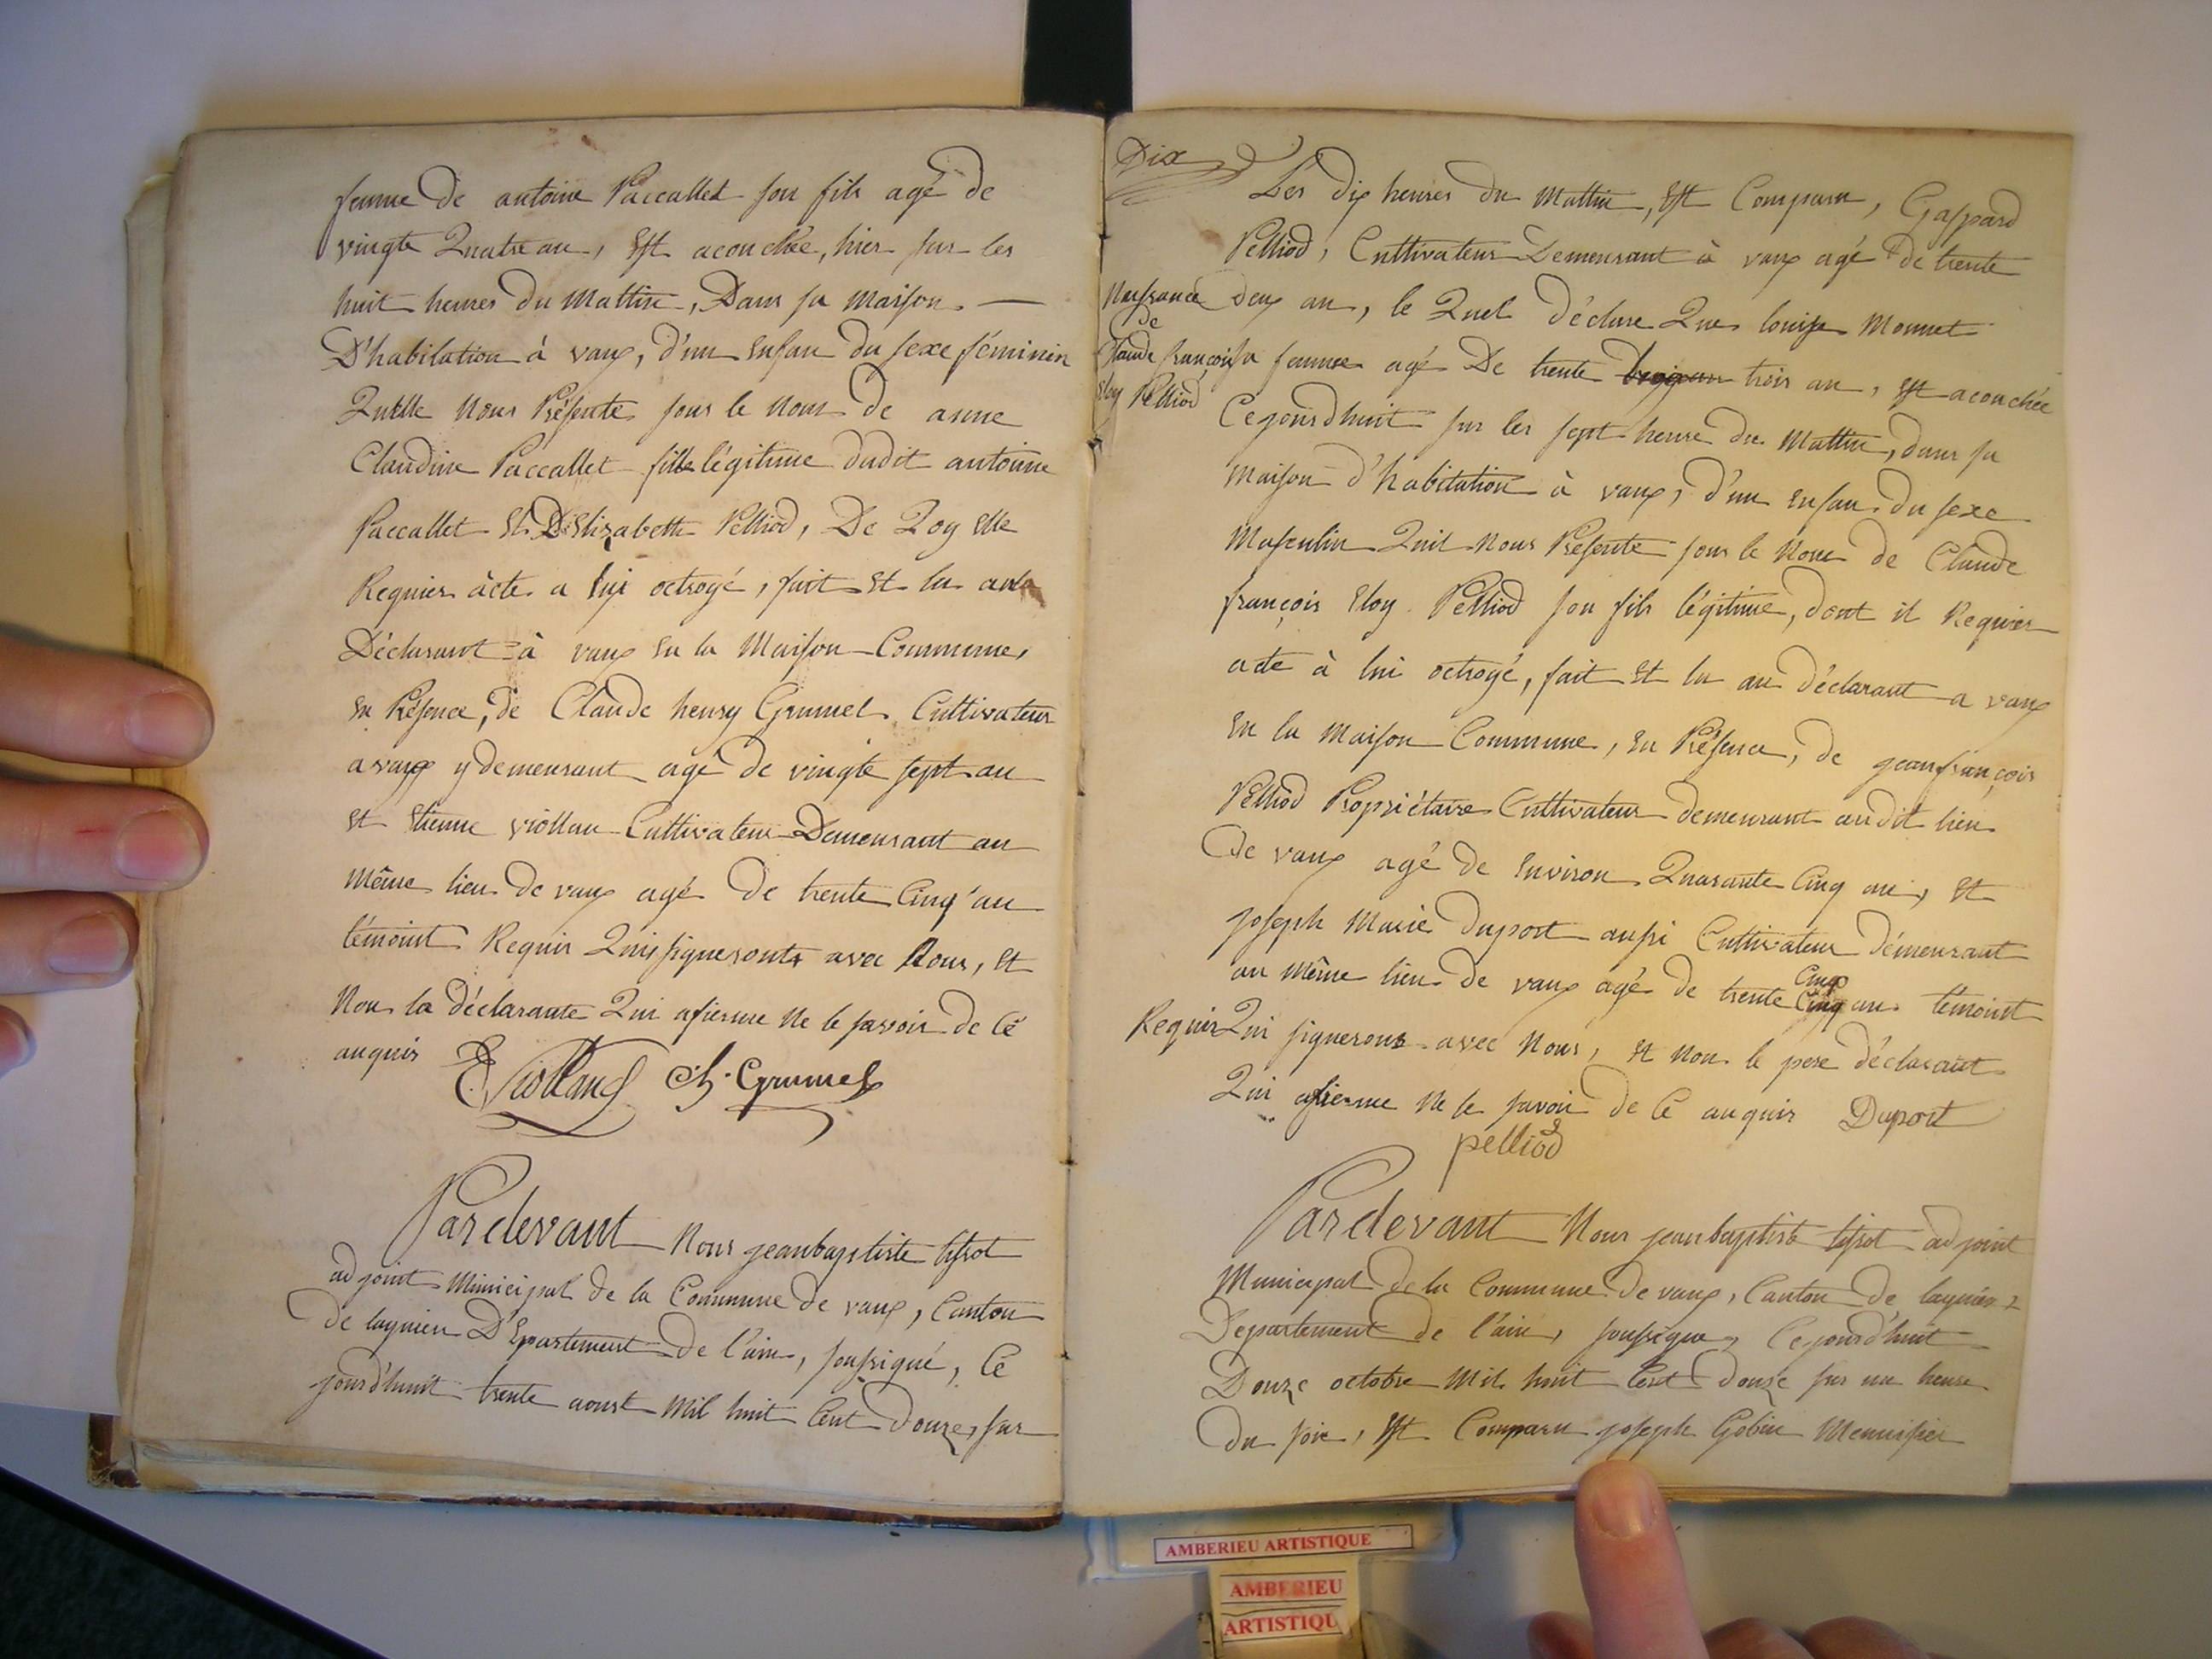 femme de antoine Paccallet son fils agé de
vingte Quatre an, Est acouchée, hier sur les
huit heures du Mattin, Dans sa Maison —
D'habitation à vaux, d'un Enfan du sexe féminin
Quelle Nous Présente sous le Nom de anne
Claudine Paccallet fille légitime dudit antoine
Paccallet Et D'Elisabeth Pelliod, De Qoy Elle
Requier àcte a lui octroyé, fait Et lu a la
Déclarant à vaux En la Maison Commune,
En Présence, de Claude henry Grumel Cultivateur
a vaux y demeurant agé de vingte sept an
Et Etienne viollan Cultivateur Demeurant au
Même lieu de vaux agé De trente Cinq an
témoint Requis Qui signeronts avec Nous, Et
Non la déclarante Qui afierme Ne le savoir de Cé
anquis E Violland Ch. Grumel
Pardevant Nous jeanbaptiste tissot
adjoint Municipal de la Commune de vaux, Canton
De lagnieu D'Epartement De l'ain, soussigné, Cé
jourd'huit trente aoust Mil huit Cent Douze, sur
Dix
Les dix heures du Mattin, Est Comparu, Gaspard
Pelliod, Cultivateur Demeurant à vaux agé de trente
Naissance
de
Claude françois
Eloy Pelliod
deux an, le Quel déclare Que louise Monnet
sa femme agé De trente trois an, Est acouchée
Cejourdhuit sur les sept heure du Mattin, dans sa
Maison d'habitation à vaux, d'un Enfan du sexe
Masculin Quil Nous Présente sous le Nom de Claude
françois Eloy Pelliod son fils légitime, dont il Requier
acte à lui octroyé, fait Et lu au déclarant a vaux
En la Maison Commune, En Présence, de jeanfrançois
Pelliod Propriétaire Cultivateur demeurant audit lieu
De vaux agé de Environ Quarante Cinq an, Et
joseph Marie duport aussi Cultivateur démeurant
au Même lieu de vaux agé de trente Cinq an témoint
Requis Qui signerons avec Nous, Et Non le pere déclarant
Qui afierme Ne le savoir de Cé anquis Duport
pelliod
Pardevant Nous jeanbaptiste tissot adjoint
Municipal de la Commune de vaux, Canton de lagnieu
Departement de l'ain, soussigne, Cejourd'huit
Douze octobre Mil huit Cent Douze sur une heure
Du soir, Est Comparu joseph Gobin Menuisier
AMBERIEU ARTISTIQUE
AMBERIEU
ARTISTIQU